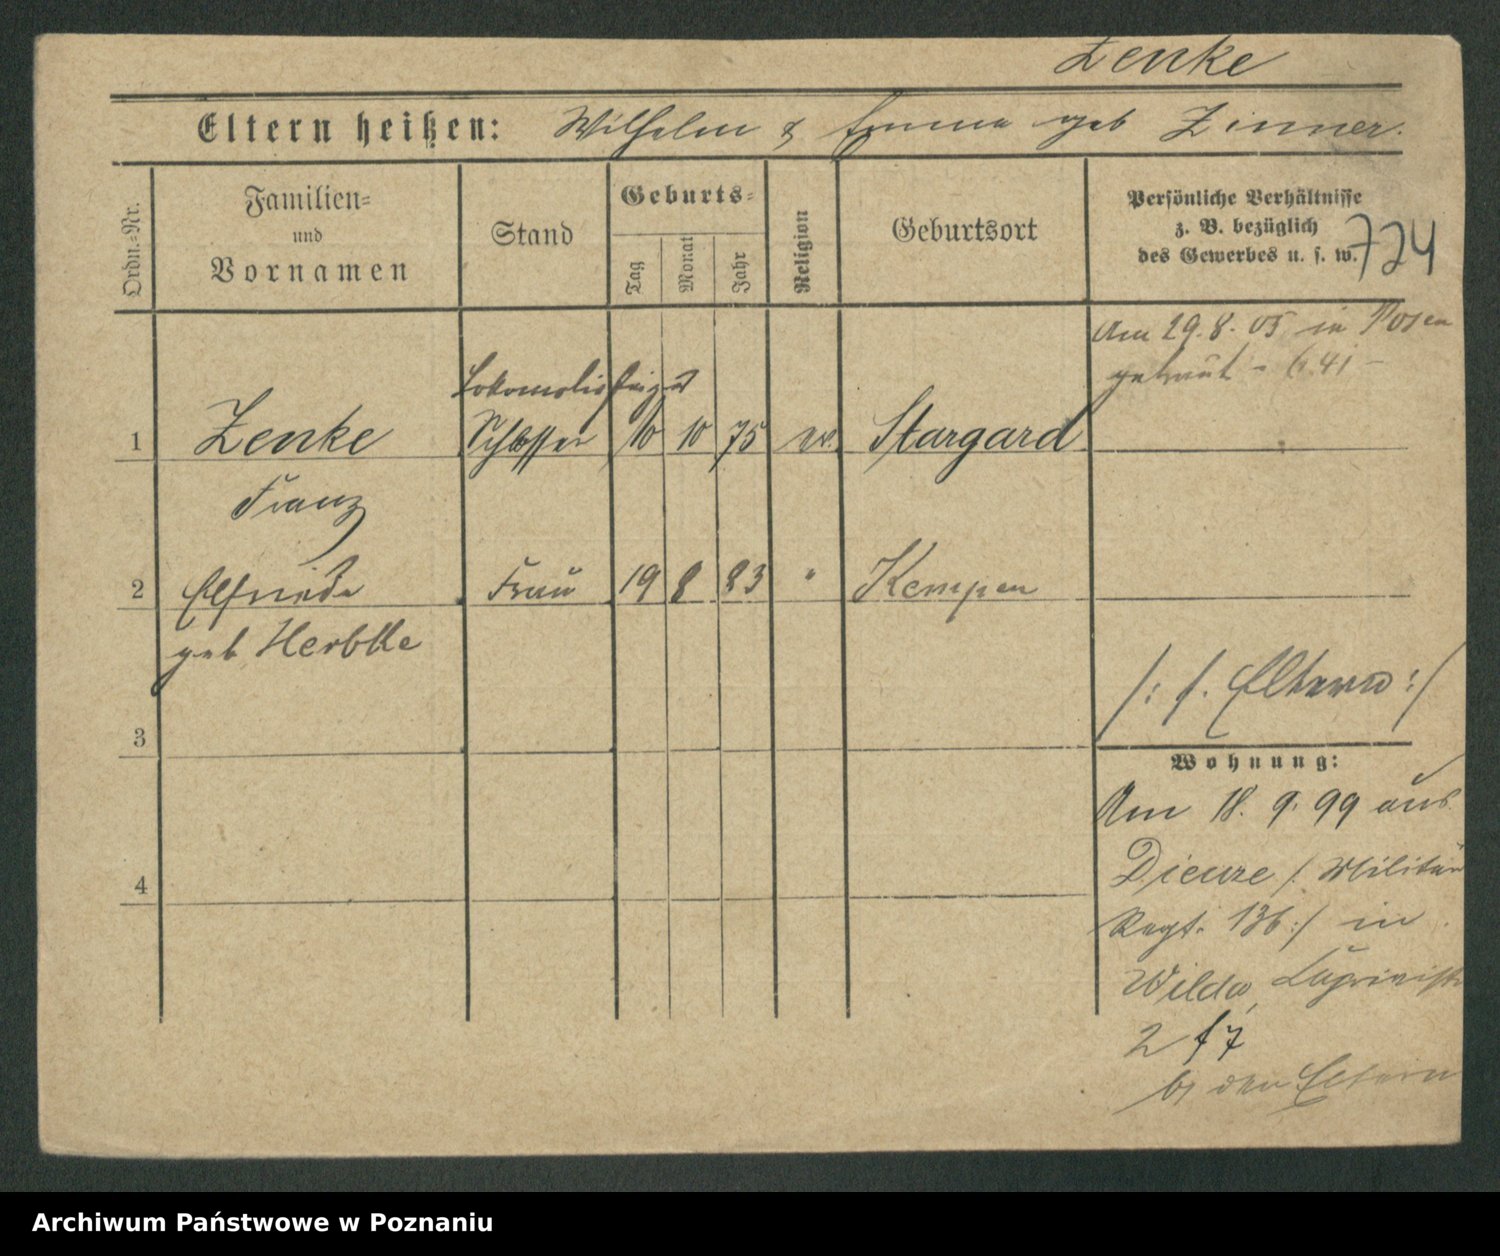 Zenke
Eltern heißen: Wilhelm & Emma geb Zinner.
Ordn.-Nr.
Familien-
und
Vornamen
Stand
Geburts-
Tag
Monat
Jahr
Religion
Geburtsort
Persönliche Verhältnisse
z. B. bezüglich
des Gewerbes u. s. w.
724
Am 29.8.05 in Posen
getraut
Lokomotivheizer
1 Zenke Schlosser 10 10 75 ev. Stargard
Franz
2 Elfriede Frau 19 8 83 " Kempen
geb
/: s. Eltern :/
3
Wohnung:
Am 18. 9. 99 aus
Dieuze /: Militär
4
Regt. 136 :/ in
Wilda,
2
bei den Eltern
Archiwum Państwowe w Poznaniu